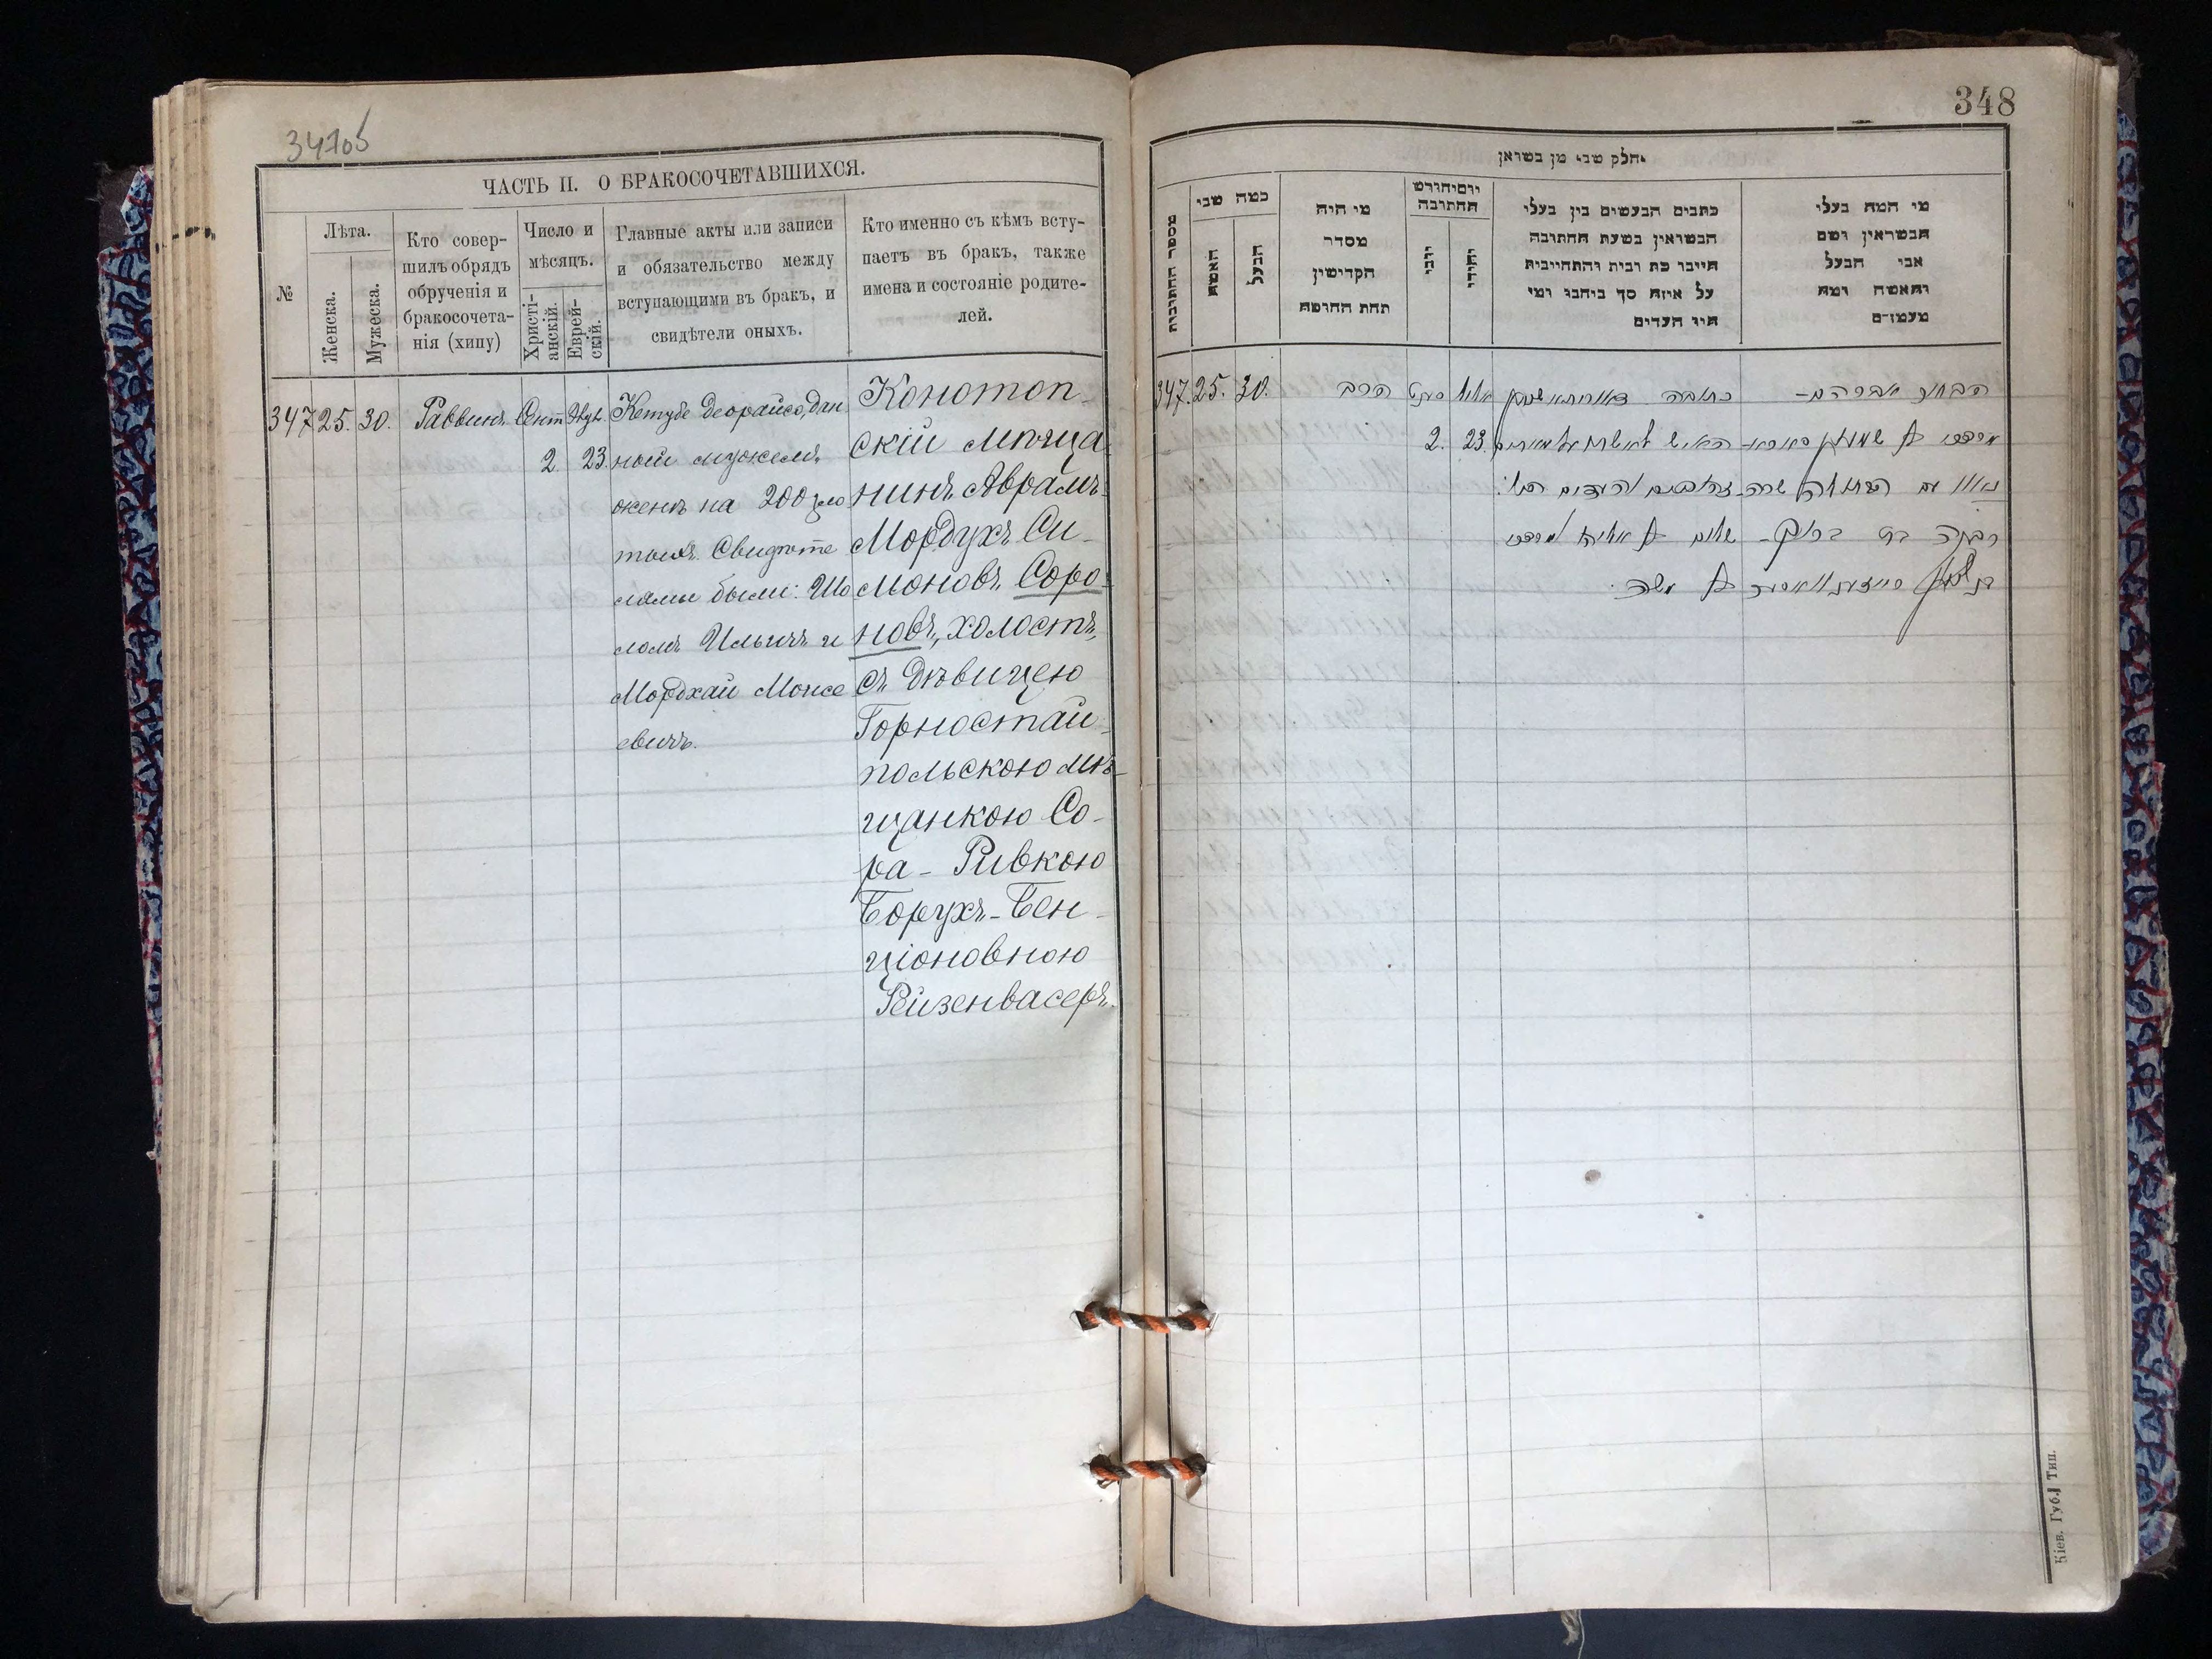 34705
ЧАСТЬ II. О БРАКОСОЧЕТАВШИХСЯ.
№
Лѣта.
Женска.
Мужеска.
Кто совер-
шилъ обрядъ
обрученія и
бракосочета-
нія (хипу)
Число и
мѣсяцъ.
Христі-
анскій.
Еврей-
скій.
Главные акты или записи
и обязательство между
вступающими въ бракъ, и
свидѣтели оныхъ.
Кто именно съ кѣмъ всту-
паетъ въ бракъ, также
имена и состояніе родите-
лей.
347 25. 30. Раввинъ Сент
2 23.
Кетубе деорайсо, дан
ный мужемъ
женѣ на 200 зло
тыхъ. Свидѣте
лями были: Шо
ломъ Ильичъ и
Мордхай Моисе
евичъ.
Конотоп-
скій мѣща-
нинъ Аврамъ-
Мордухъ Си-
моновъ Соро-
новъ, холостъ,
съ дѣвицею
Горностай-
польскою мѣ-
щанкою Со-
ра-Ривкою
Борухъ-Бен-
ціоновною
Рейзенвасеръ.
348
חלק שני מן נשואן
מספר החתונות
כמה שני
האשה
הבעל
מי היה
מסדר
הקדישין
תחת החופה
יום וחודש
החתונה
נוצרי
יהודי
כתבים הנעשים בין בעלי
הנשואין בשעת החתונה
היינו כת ובית והתחייבות
על איזה סך ביחבו ומי
היו העדים
מי המה בעלי
הנשואין ושם
אבי הבעל
והאשה ומה
מעמדם
347. 25. 30. הרב
2. 23.
הבחור אברהם-
מרדכי
שרה-
רבקה בת ברוך-
כתובה דאורייתא
שלום
משה
Кіев. Губ. Тип.